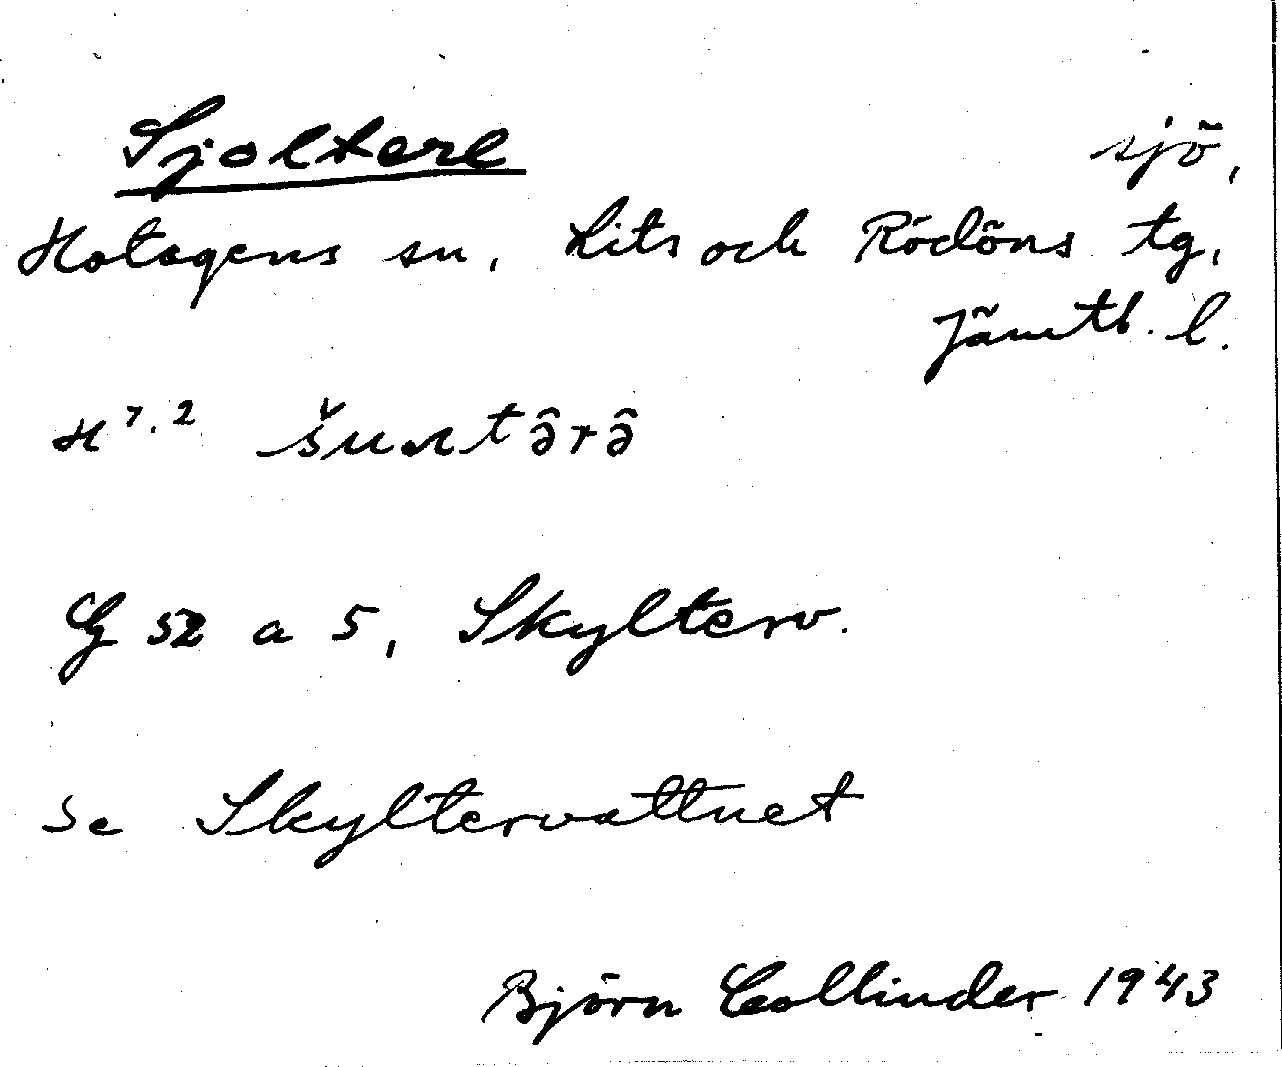 Sjoltere sjö,
Hotagens sn, Lits och Rödöns tg,
Jämtl. l.
H 7.2
G 52 a 5, Skylterv.
se Skyltervattnet
Björn Collinder 1943